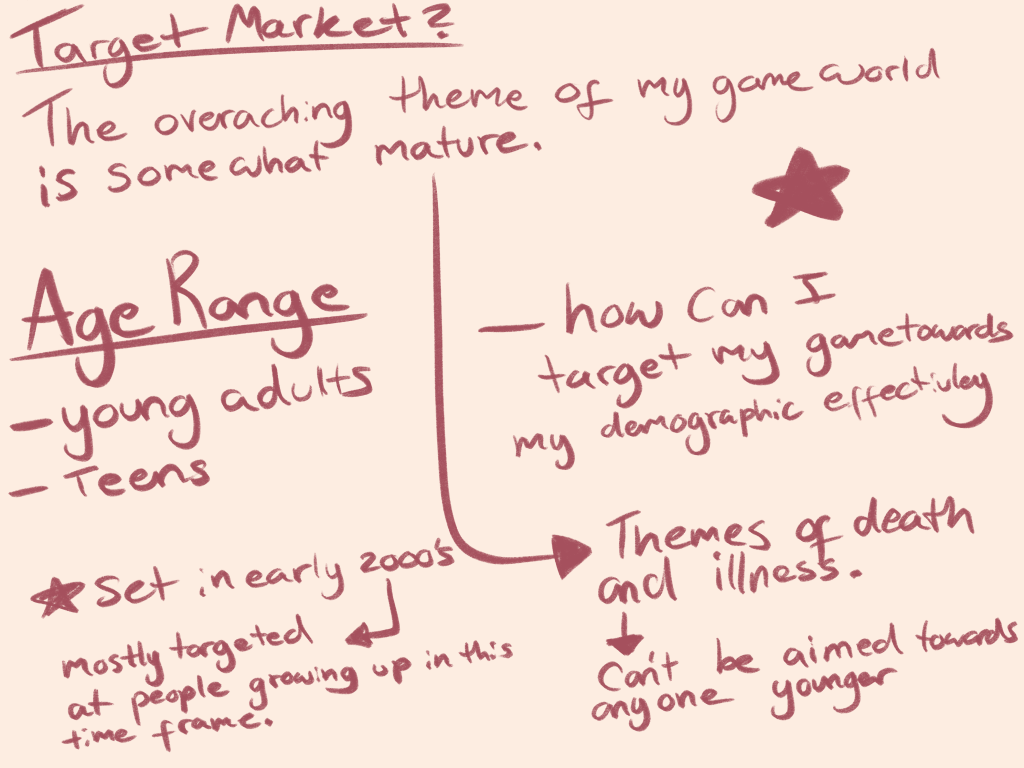 Target Market?
The overaching theme of my game world
is somewhat mature.
Age Range
- young adults
- Teens
- how Can I
target my game towards
my demographic effectivley
Themes of death
and illness.
Can't be aimed towards
anyone younger
Set in early 2000's
mostly targeted
at people growing up in this
time frame.